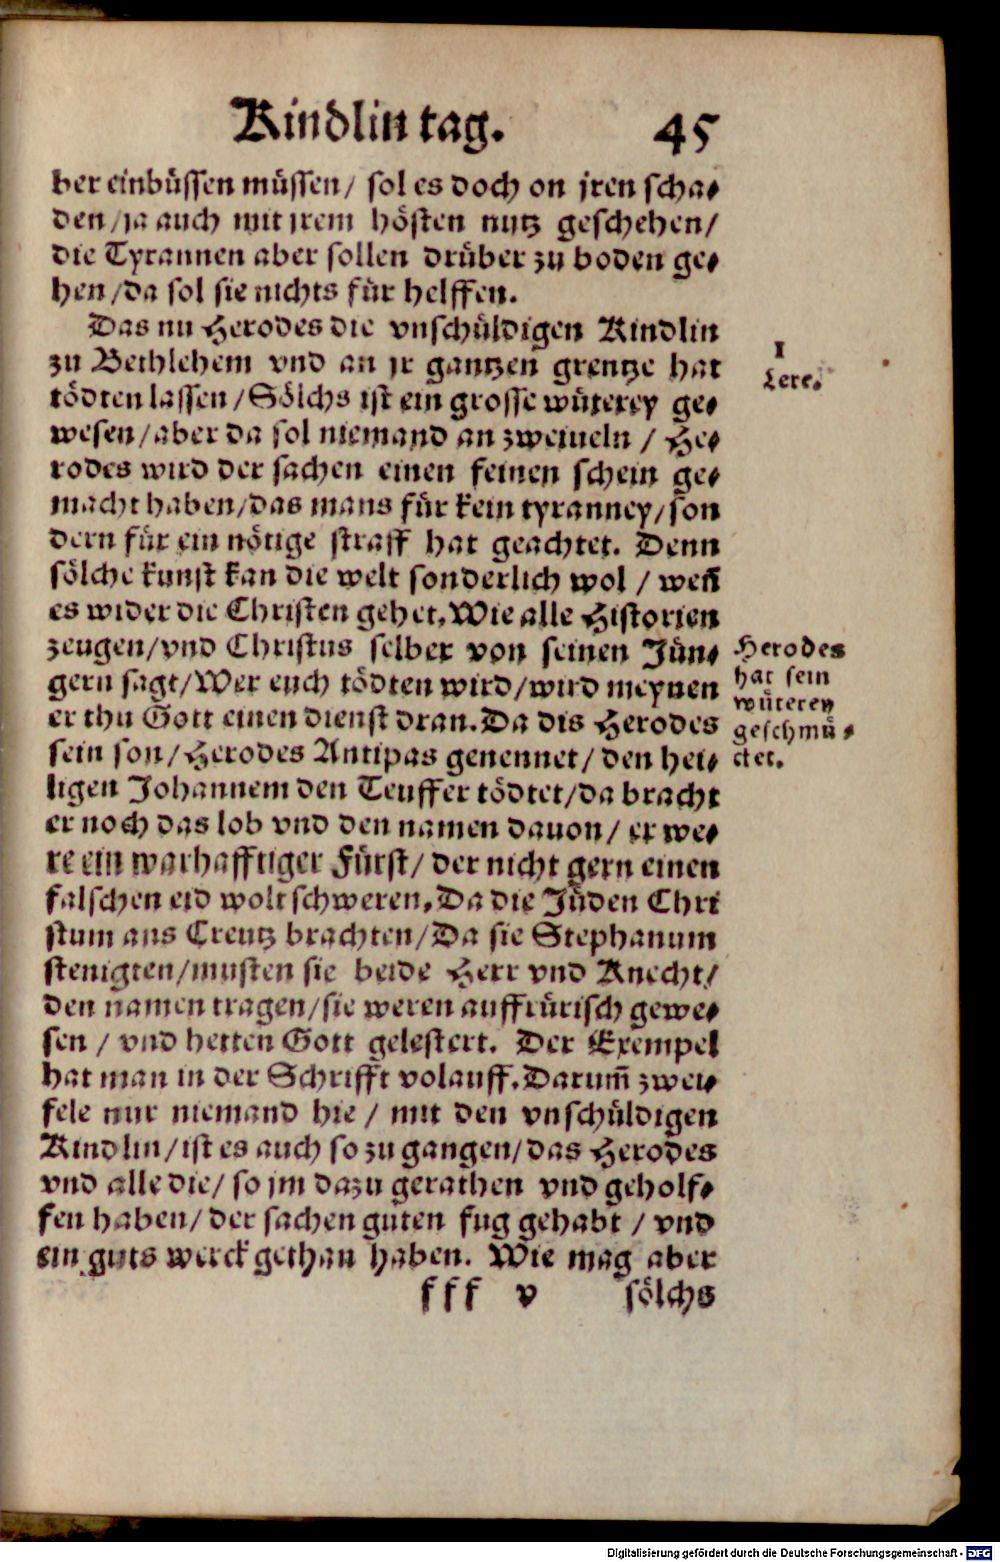 Kindlin tag. 45
ber einbüssen müssen/ sol es doch on jren scha⸗
den/ja auch mit jrem hösten nutz geschehen/
die Tyrannen aber sollen drüber zu boden ge⸗
hen/da sol sie nichts für helffen.
Das nu Herodes die vnschüldigen Kindlin
zu Bethlehem vnd an jr gantzen grentze hat
tödten lassen/Sölchs ist ein grosse wüterey ge⸗
wesen/aber da sol niemand an zweiueln / He⸗
rodes wird der sachen einen feinen schein ge⸗
macht haben/das mans für kein tyranney/son
dern für ein nötige straff hat geachtet. Denn
sölche kunst kan die welt sonderlich wol / weñ
es wider die Christen gehet, Wie alle Historien
zeugen/vnd Christus selber von seinen Jün⸗
gern sagt/Wer euch tödten wird/wird meynen
er thu Gott einen dienst dran. Da dis Herodes
sein son/Herodes Antipas genennet/ den hei⸗
ligen Johannem den Teuffer tödtet/da bracht
er noch das lob vnd den namen dauon/ er we⸗
re ein warhafftiger Fürst/ der nicht gern einen
falschen eid wolt schweren, Da die Jüden Chri
stum ans Creutz brachten/Da sie Stephanum
stenigten/musten sie beide Herr vnd Knecht/
den namen tragen/sie weren auffrürisch gewe⸗
sen / vnd hetten Gott gelestert. Der Exempel
hat man in der Schrifft volauff. Darum̃ zwei⸗
fele nur niemand hie / mit den vnschüldigen
Kindlin/ist es auch so zu gangen/das Herodes
vnd alle die/ so jm dazu gerathen vnd geholf⸗
fen haben/ der sachen guten fug gehabt / vnd
ein guts werck gethan haben. Wie mag aber
fff v sölchs
1
Lere.
Herodes
hat sein
wüterey
geschmü⸗
cket.
Digitalisierung gefördert durch die Deutsche Forschungsgemeinschaft - DFG